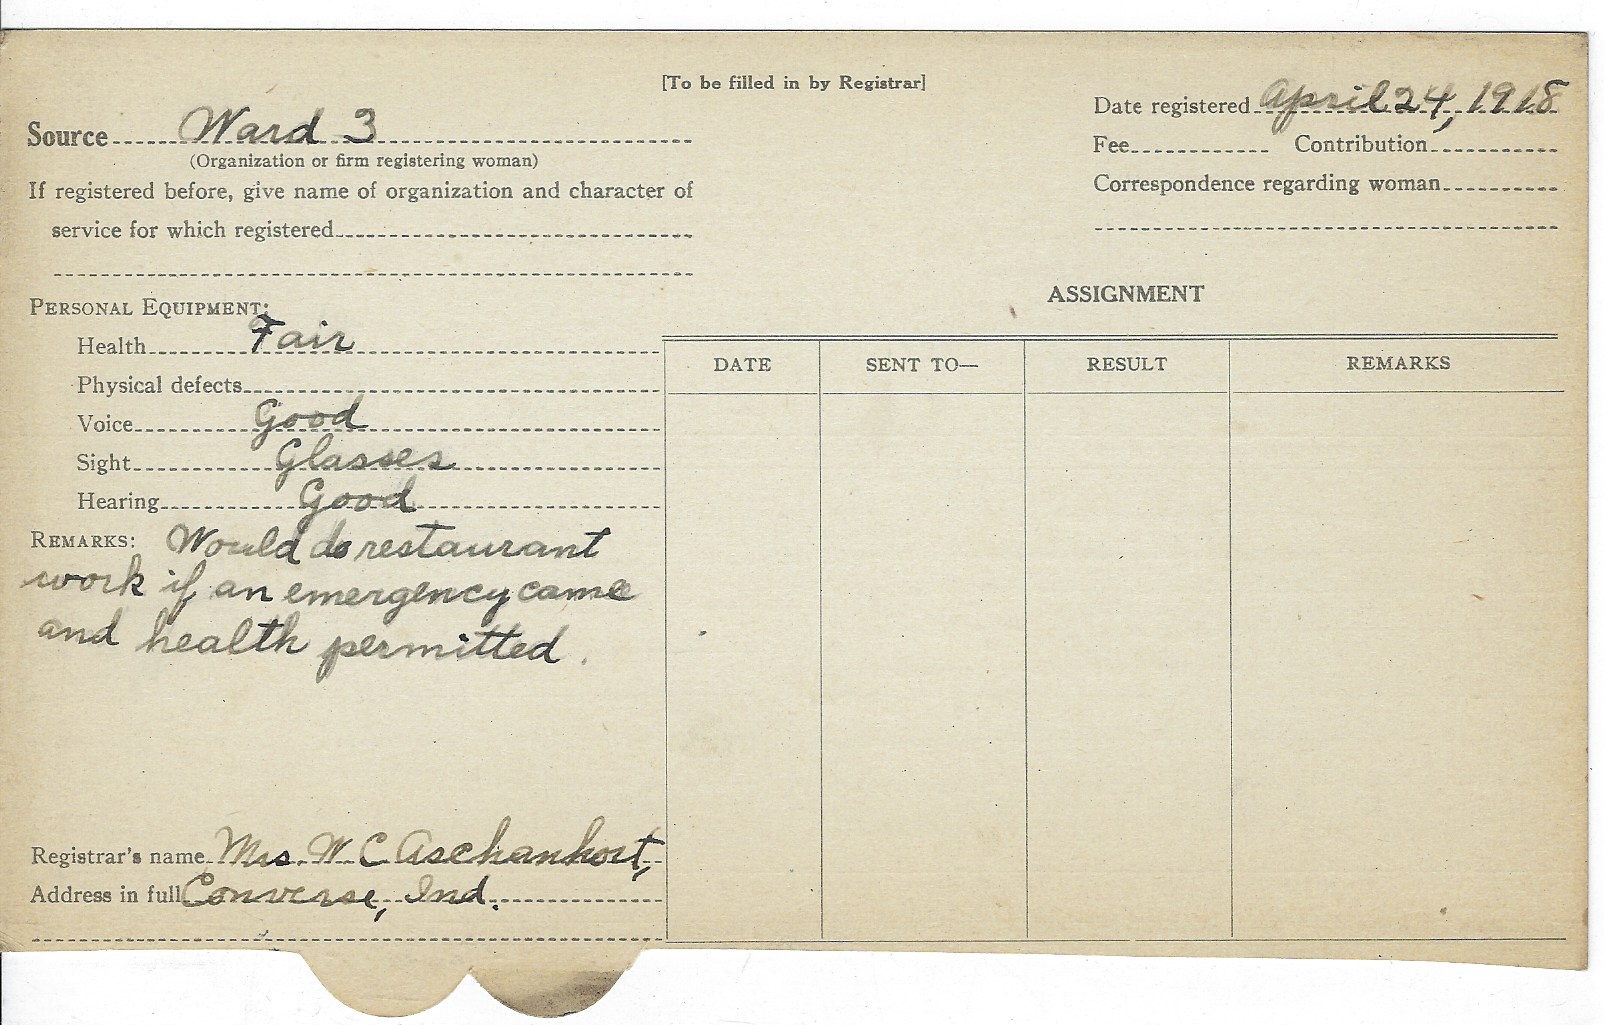 [To be filled in by Registrar]
Source Ward 3
(Organization or firm registering woman)
If registered before, give name of organization and character of
service for which registered
Date registered April 24, 1918
Fee Contribution
Correspondence regarding woman
PERSONAL EQUIPMENT:
Health Fair
Physical defects
Voice Good
Sight Glasses
Hearing Good
REMARKS: Would do restaurant
work if an emergency came
and health permitted.
Registrar's name Mrs. W C Aschanhort,
Address in full Converse, Ind.
ASSIGNMENT
DATE SENT TO— RESULT REMARKS